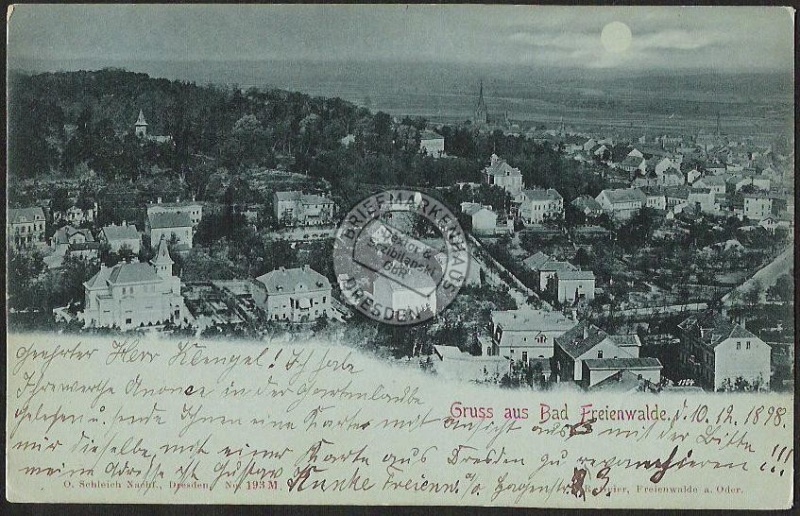 BRIEFMARKENHAUS
Wexior & Scibilanski
GbR
DRESDEN
1724
Geehrter Herr Klengel! Ich habe
Ihre werthe Anonce in der Gartenlaube
gelesen u. sende Ihnen eine Karte mit Ansicht aus
Gruss aus Bad Freienwalde. d. 10.12.1898.
mit der Bitte
mir dieselbe mit einer Karte aus Dresden zu revanchieren !!!
meine Adresse ist Gustav Kunke Freienw. a/o
O. Schleich Nachf., Dresden. No. 193 M
Freienwalde a. Oder.